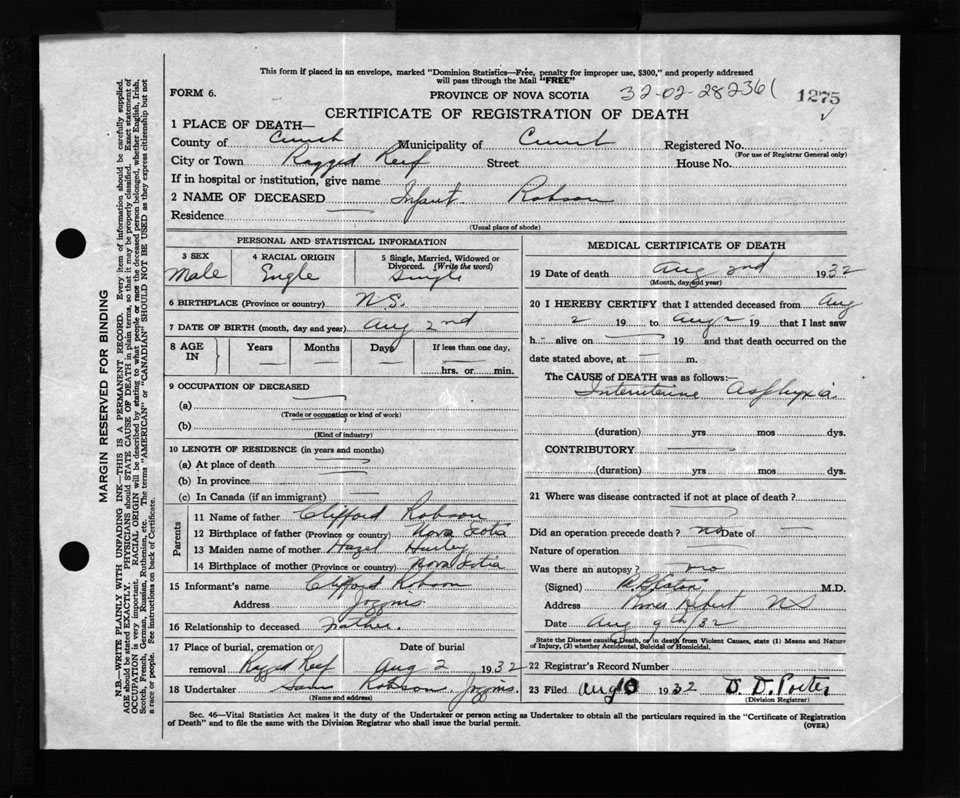 This form if placed in an envelope, marked "Dominion Statistics—Free, penalty for improper use, $300," and properly addressed
will pass through the Mail "FREE"
FORM 6.
PROVINCE OF NOVA SCOTIA
32-02-282361
1275
CERTIFICATE OF REGISTRATION OF DEATH
1 PLACE OF DEATH—
County of Cumb Municipality of Cumb Registered No.
(For use of Registrar General only)
City or Town Ragged Reef Street House No.
If in hospital or institution, give name
2 NAME OF DECEASED Infant Robson
Residence —
(Usual place of abode)
PERSONAL AND STATISTICAL INFORMATION
3 SEX 4 RACIAL ORIGIN 5 Single, Married, Widowed or Divorced. (Write the word)
Male Engle Single
6 BIRTHPLACE (Province or country) N.S.
7 DATE OF BIRTH (month, day and year) Aug 2nd
8 AGE IN Years Months Days If less than one day,
hrs. or min.
9 OCCUPATION OF DECEASED
(a)
(Trade or occupation or kind of work)
(b)
(Kind of industry)
10 LENGTH OF RESIDENCE (in years and months)
(a) At place of death
(b) In province
(c) In Canada (if an immigrant)
Parents
11 Name of father Clifford Robson
12 Birthplace of father (Province or country) Nova Scotia
13 Maiden name of mother Hazel Hurley
14 Birthplace of mother (Province or country) Nova Scotia
15 Informant's name Clifford Robson
Address Joggins
16 Relationship to deceased Father.
17 Place of burial, cremation or Date of burial
removal Ragged Reef Aug 2 1932
18 Undertaker Robson Joggins
(Name and address)
MEDICAL CERTIFICATE OF DEATH
19 Date of death Aug 2nd 1932
(Month, day and year)
20 I HEREBY CERTIFY that I attended deceased from Aug
2 19 to Aug 2 19 that I last saw
h alive on — 19 and that death occurred on the
date stated above, at — m.
The CAUSE of DEATH was as follows:
Interuterine Asphyxia
(duration) yrs mos dys.
CONTRIBUTORY
(duration) yrs mos dys.
21 Where was disease contracted if not at place of death ?
Did an operation precede death ? no Date of —
Nature of operation
Was there an autopsy ? no
(Signed) M.D.
Address River Hebert NS
Date Aug 9th/32
State the Disease causing Death, or in death from Violent Causes, state (1) Means and Nature
of Injury, (2) whether Accidental, Suicidal or Homicidal.
22 Registrar's Record Number
23 Filed Aug 10 1932 D. D. Porter
(Division Registrar)
Sec. 46—Vital Statistics Act makes it the duty of the Undertaker or person acting as Undertaker to obtain all the particulars required in the "Certificate of Registration
of Death" and to file the same with the Division Registrar who shall issue the burial permit.
(OVER)
MARGIN RESERVED FOR BINDING
N.B.—WRITE PLAINLY WITH UNFADING INK—THIS IS A PERMANENT RECORD. Every item of information should be carefully supplied.
AGE should be stated EXACTLY. PHYSICIANS should STATE CAUSE OF DEATH in plain terms, so that it may be properly classified. Exact statement of
OCCUPATION is very important. RACIAL ORIGIN will be described by stating to what people or race the deceased person belonged, whether English, Irish,
Scotch, French, German, Russian, Ruthenian, etc. The terms "AMERICAN" or "CANADIAN" SHOULD NOT BE USED as they express citizenship but not
a race or people. See instructions on back of Certificate.